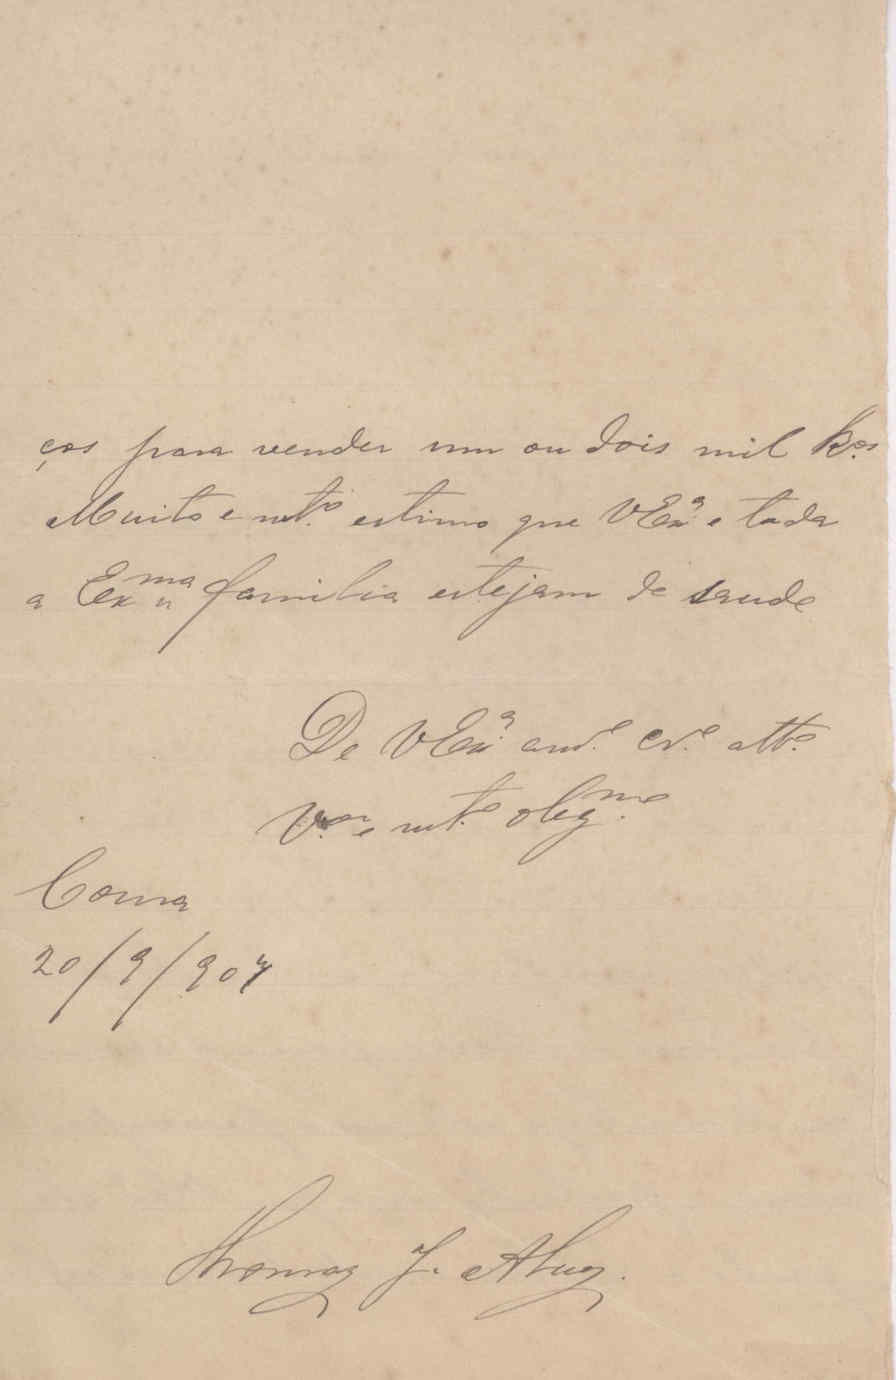 ços para vender um ou dois mil k.os
Muito e mt.º estimo que V Ex.ª e toda
a Ex.ma familia estejam de saude
De V Ex.ª am.º cr.º att.º
V.or e mt.º obrig.mo
Coma
20/9/907
Thomaz J. Alves.